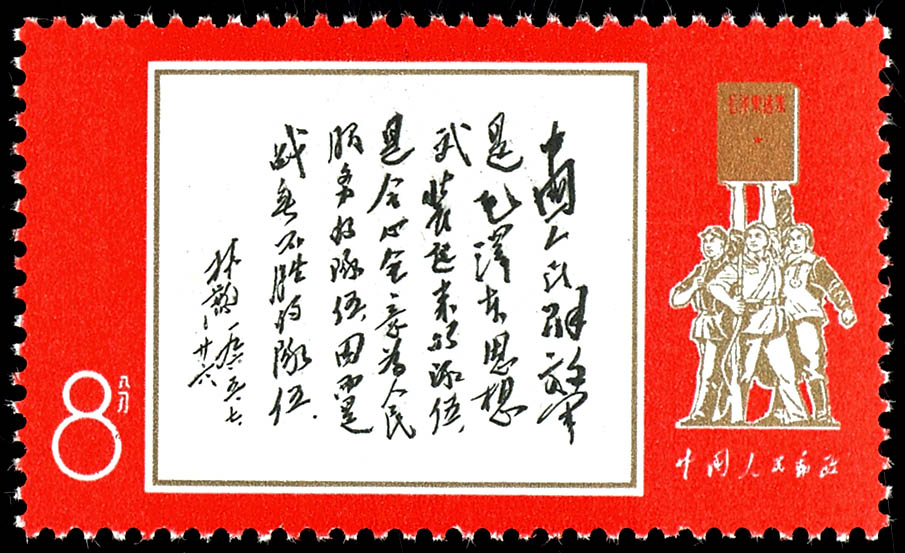 中国人民解放军
是毛泽东思想
武装起来的队伍，
是全心全意为人民
服务的队伍，因而是
战无不胜的队伍。
林彪
一九六五、七、
廿六
毛泽东选集
8
八分
中国人民邮政